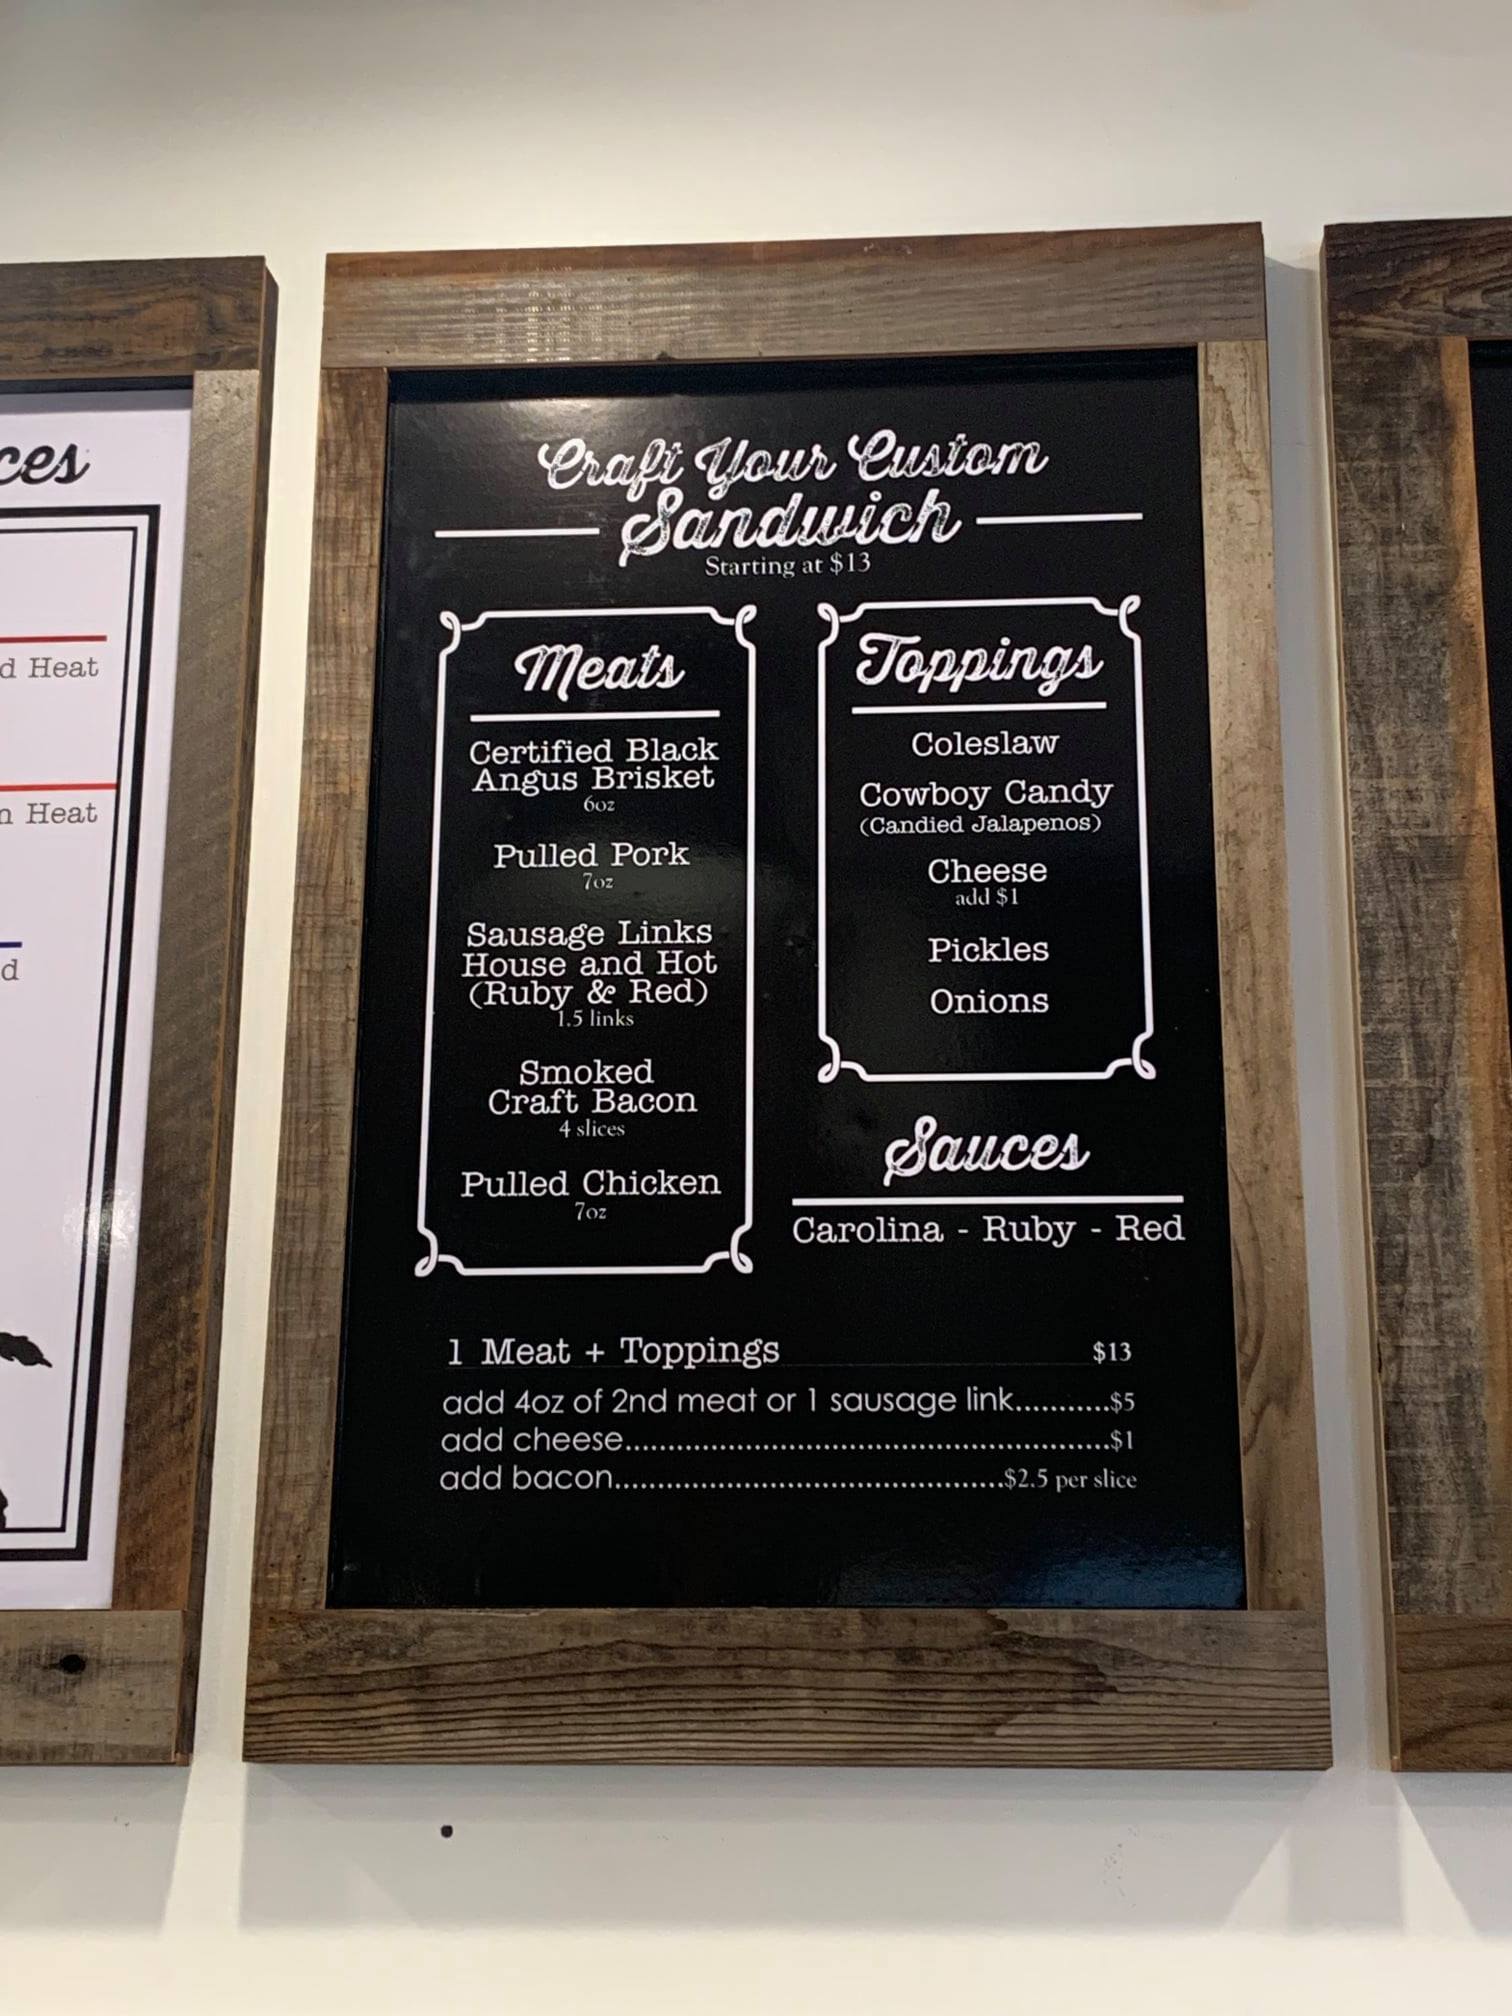 ces
d Heat
n Heat
d
Craft Your Custom
Sandwich
Starting at $13
Meats
Certified Black
Angus Brisket
6oz
Pulled Pork
7oz
Sausage Links
House and Hot
(Ruby & Red)
1.5 links
Smoked
Craft Bacon
4 slices
Pulled Chicken
7oz
Toppings
Coleslaw
Cowboy Candy
(Candied Jalapenos)
Cheese
add $1
Pickles
Onions
Sauces
Carolina - Ruby - Red
1 Meat + Toppings $13
add 4oz of 2nd meat or 1 sausage link...........$5
add cheese.........................................................$1
add bacon.............................................$2.5 per slice